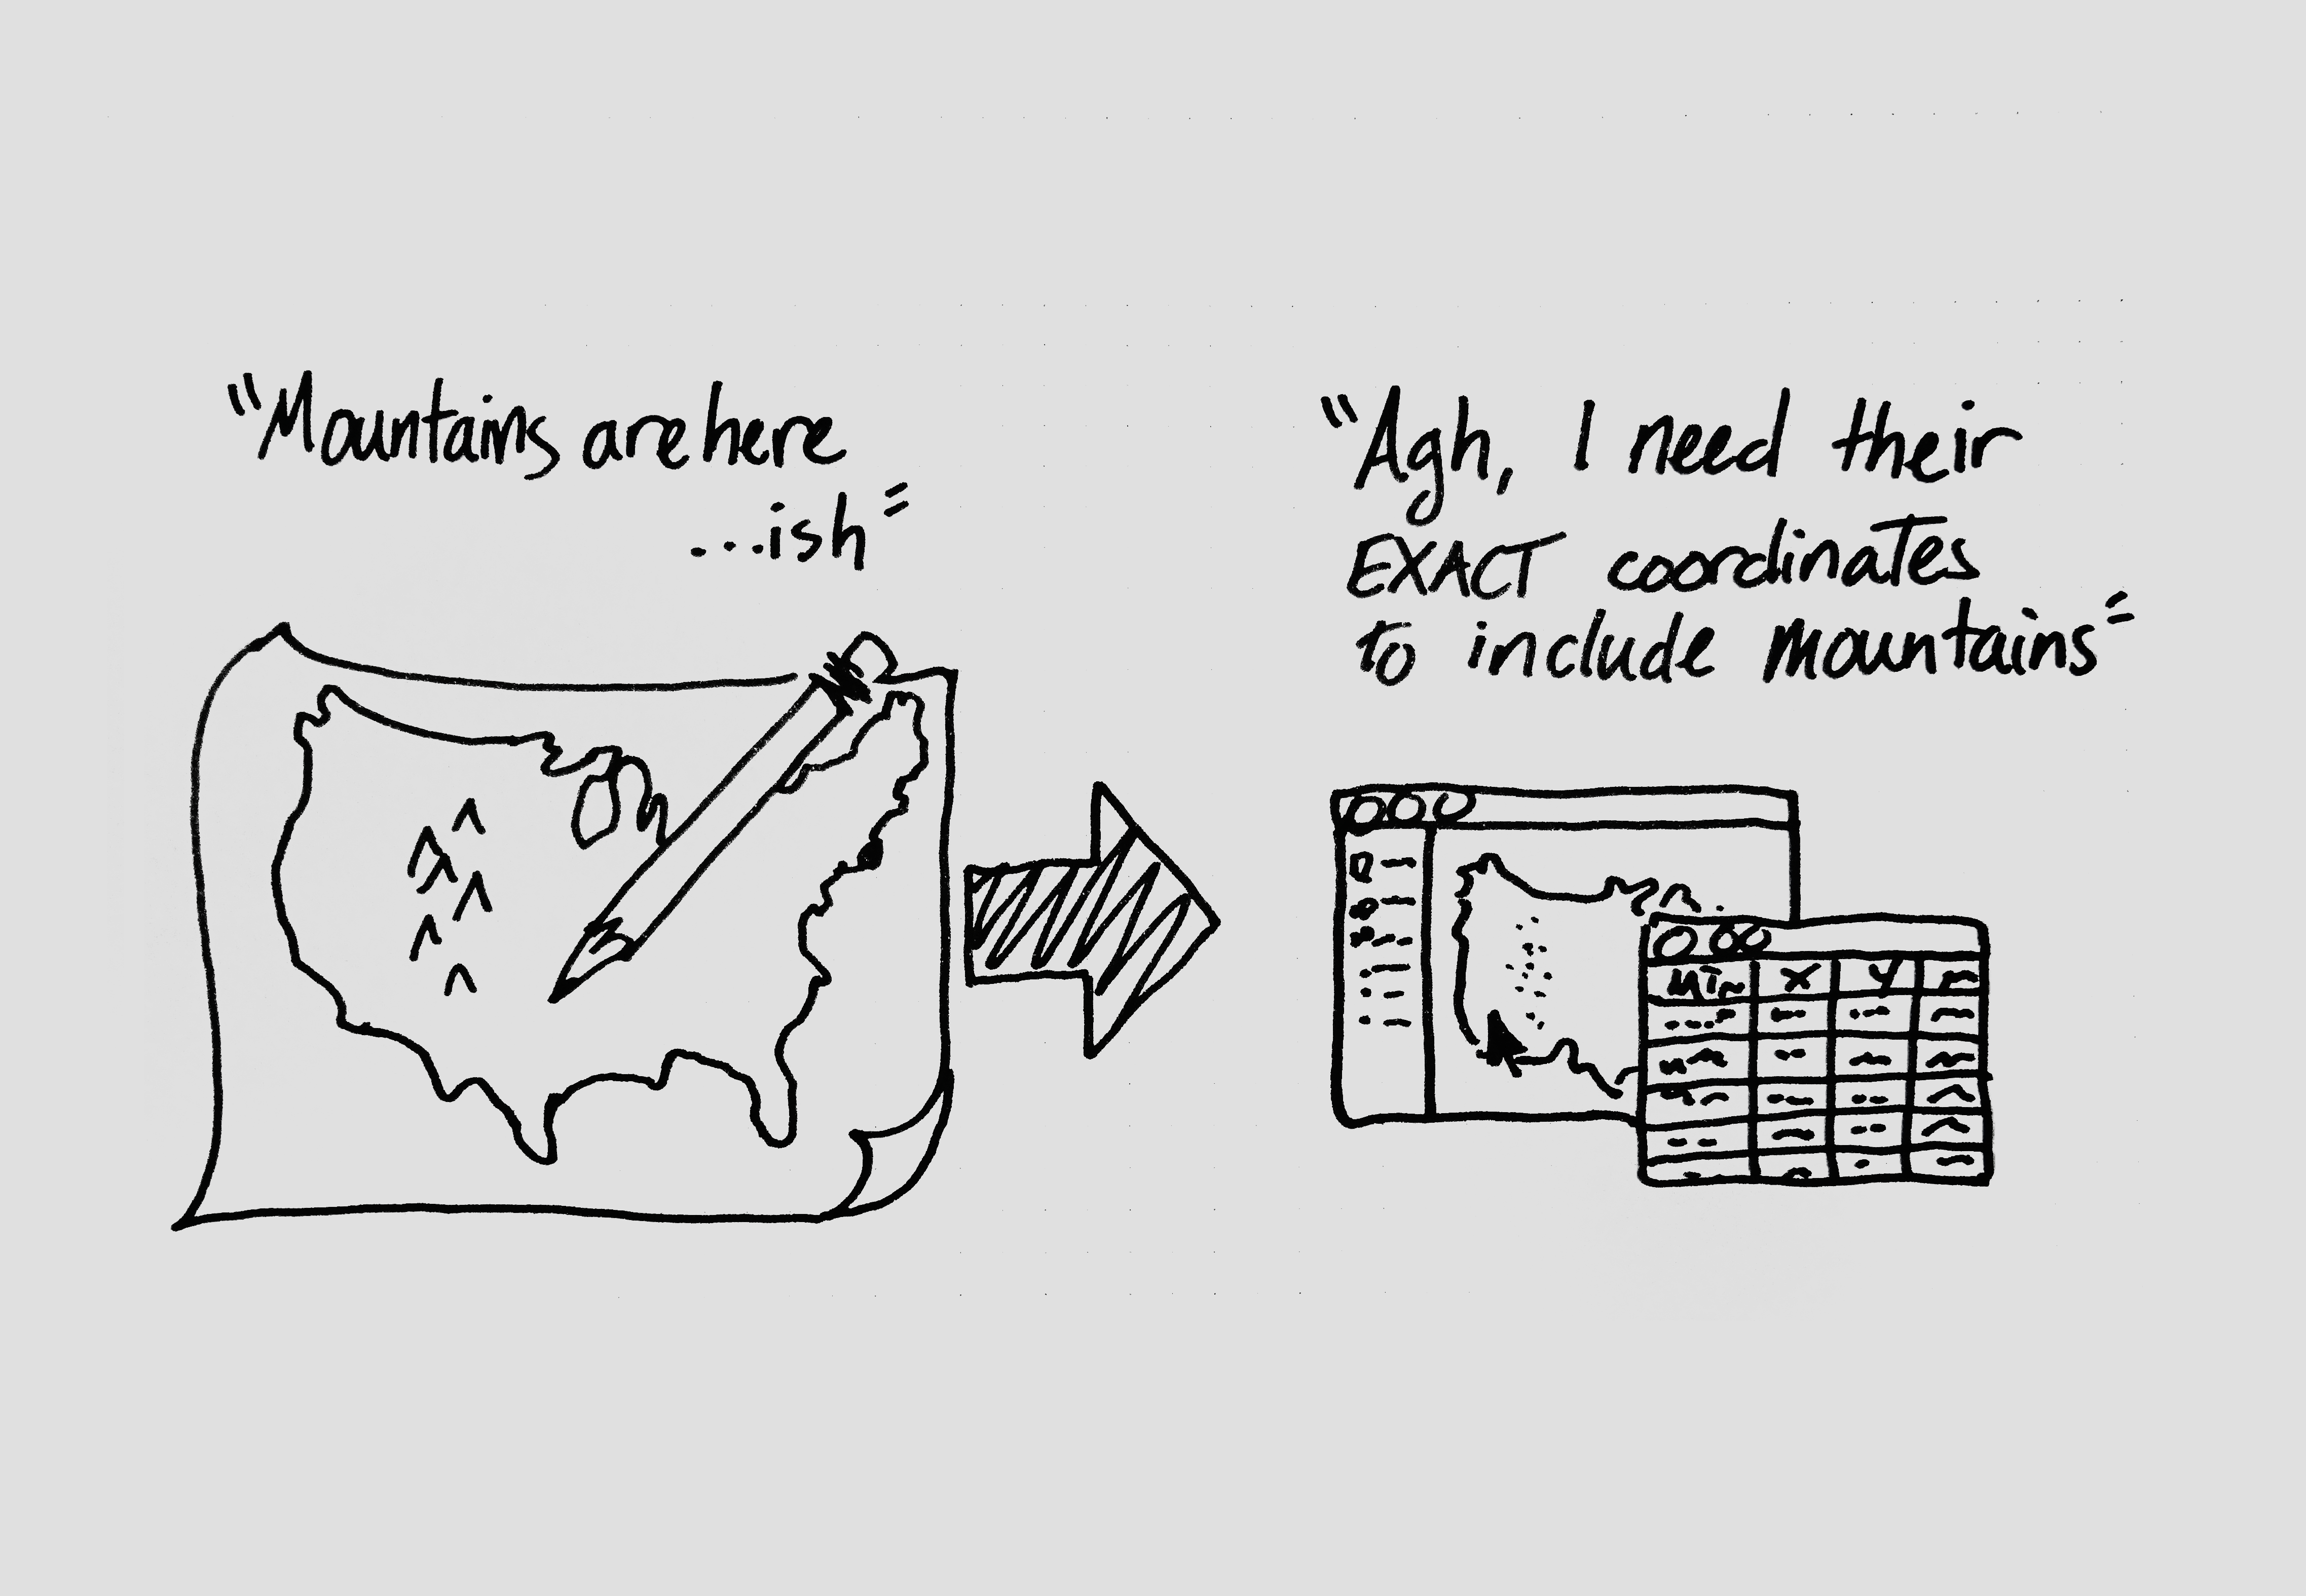 "Mountains are here
...ish"
"Agh, I need their
EXACT coordinates
to include mountains"
X Y